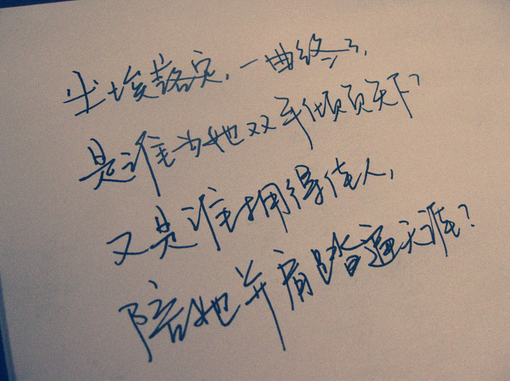 尘埃落定,一曲终了,
是谁为她双手倾天下?
又是谁拥得佳人,
陪她并肩踏遍天涯?